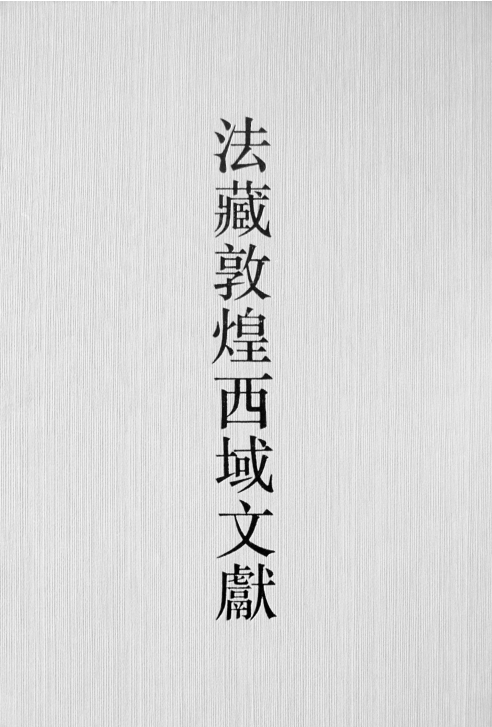 法藏敦煌西域文獻